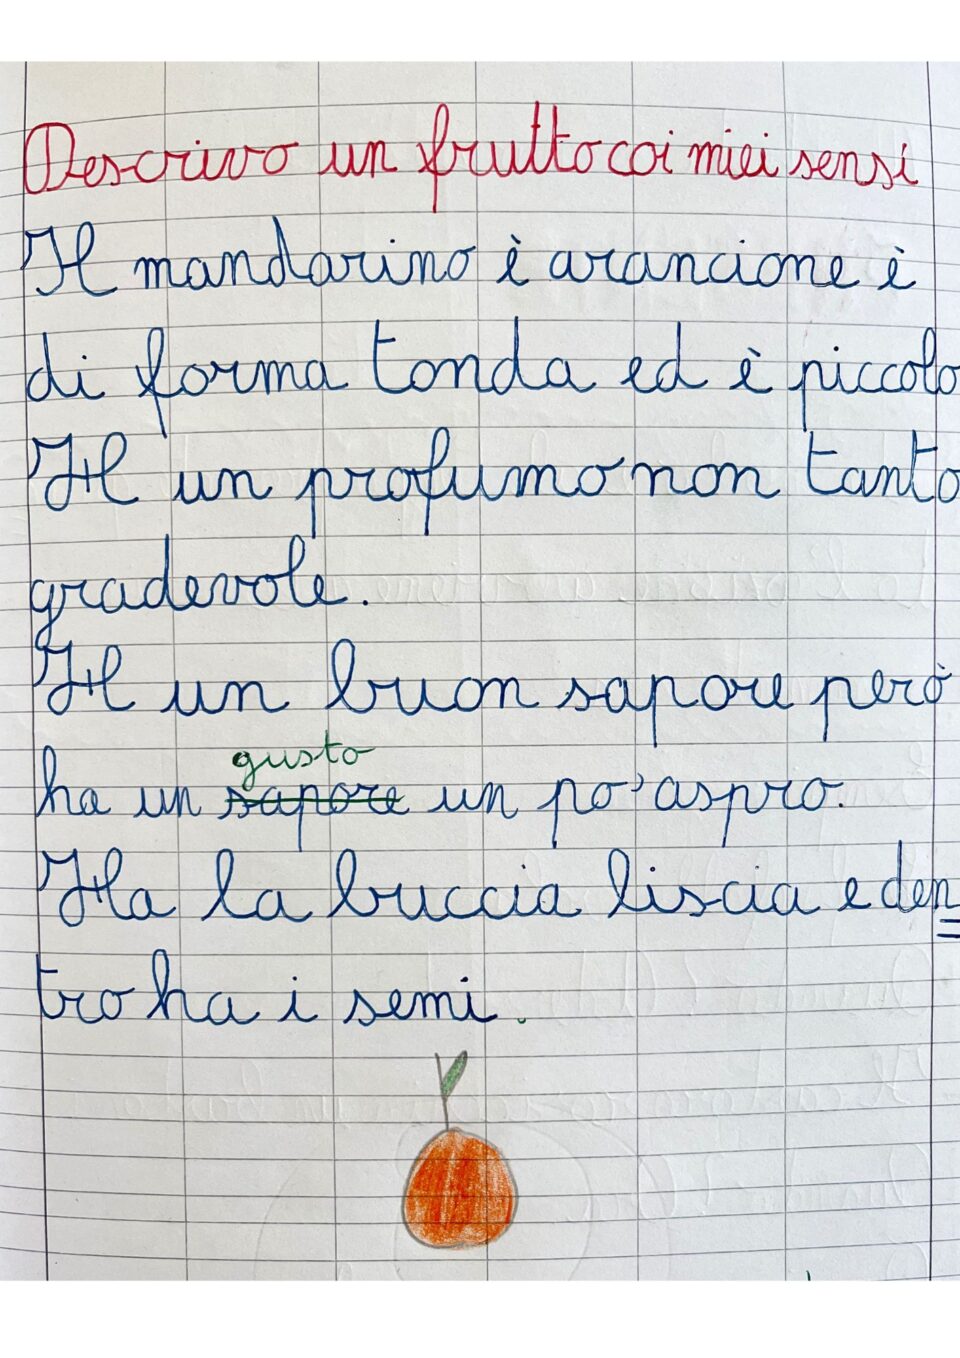 Descrivo un frutto coi miei sensi
Il mandarino è arancione è
di forma tonda ed è piccolo
H un profumo non tanto
gradevole.
H un buon sapore però
gusto
ha un sapore un po' aspro.
Ha la buccia liscia e den
tro ha i semi.